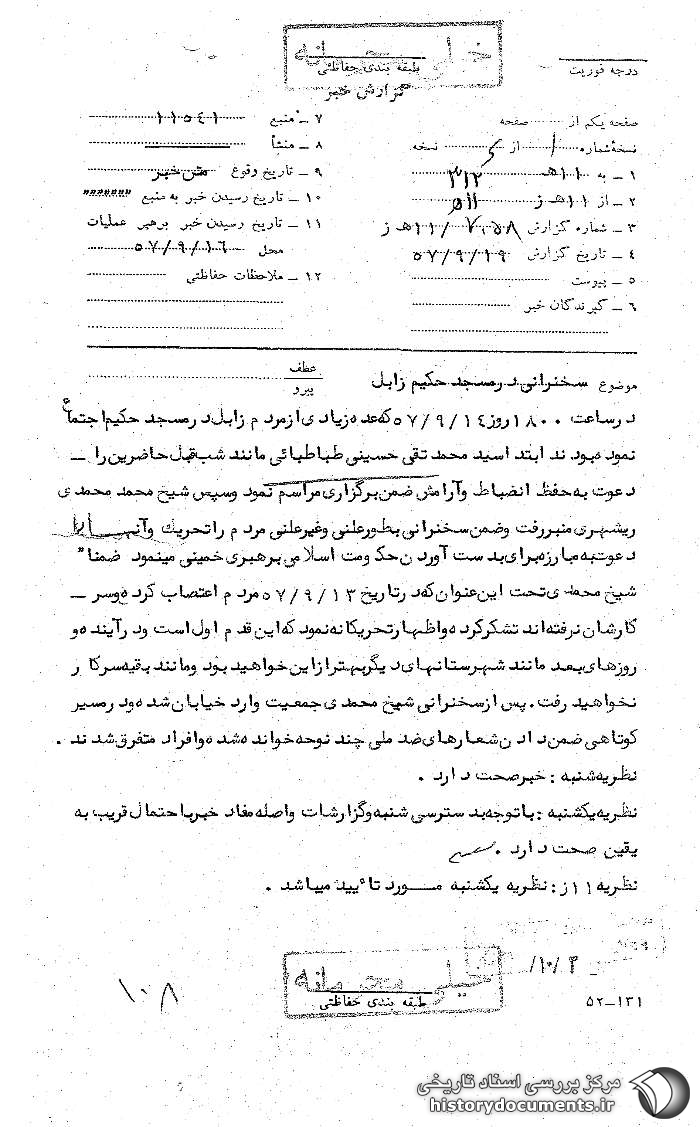 خیلی محرمانه
طبقه بندی حفاظتی
درجه فوریت
گزارش خبر
صفحه یکم از صفحه
نسخهٔ شماره ۱ از نسخه
۱ ــ به ۱۱هـ ۳۱۲
۲ ــ از ۱۱هـ ز ۵۱۱
۳ ــ شماره گزارش ۷۰۵۸/۱۱هـ ز
۴ ــ تاریخ گزارش ۵۷/۹/۱۹
۵ ــ پیوست
۶ ــ گیرندگان خبر
۷ ــ منبع ۱۱۵۴۱
۸ ــ منشأ
۹ ــ تاریخ وقوع متن خبر
۱۰ ــ تاریخ رسیدن خبر به منبع """""""
۱۱ ــ تاریخ رسیدن خبر برهبر عملیات
محل ۵۷/۹/۱۶
۱۲ ــ ملاحظات حفاظتی
عطف
پیرو
موضوع سخنرانی درمسجد حکیم زابل
درساعت ۱۸۰۰ روز ۵۷/۹/۱۴ که عده زیادی ازمردم زابل در مسجد حکیم اجتماع
نموده بودند ابتدا سید محمد تقی حسینی طباطبائی مانند شب قبل حاضرین را ــ
دعوت به حفظ انضباط وآرامش ضمن برگزاری مراسم نمود وسپس شیخ محمد محمدی
ریشهری منبررفت وضمن سخنرانی بطورعلنی وغیرعلنی مردم را تحریک وآنها را
دعوت به مبارزه برای بدست آوردن حکومت اسلامی برهبری خمینی مینمود ضمنا"
شیخ محمدی تحت این عنوان که درتاریخ ۵۷/۹/۱۳ مردم اعتصاب کرده وسر ــ
کارشان نرفته اند تشکرکرده واظهارتحریکانه نمود که این قدم اول است ودرآینده و
روزهای بعد مانند شهرستانهای دیگربهترازاین خواهید بود ومانند بقیه سرکار
نخواهید رفت. پس ازسخنرانی شیخ محمدی جمعیت وارد خیابان شده ودرمسیر
کوتاهی ضمن دادن شعارهای ضد ملی چند نوحه خوانده شده وافراد متفرق شدند .
نظریه شنبه : خبرصحت دارد .
نظریه یکشنبه : با توجه بدسترسی شنبه وگزارشات واصله مفاد خبربا احتمال قریب به
یقین صحت دارد .
نظریه ۱۱ز : نظریه یکشنبه مــورد تائید میباشد .
۱۰/۴/
خیلی محرمانه
طبقه بندی حفاظتی
۱۰۸
۵۲-۱۳۱
مرکز بررسی اسناد تاریخی
historydocuments.ir